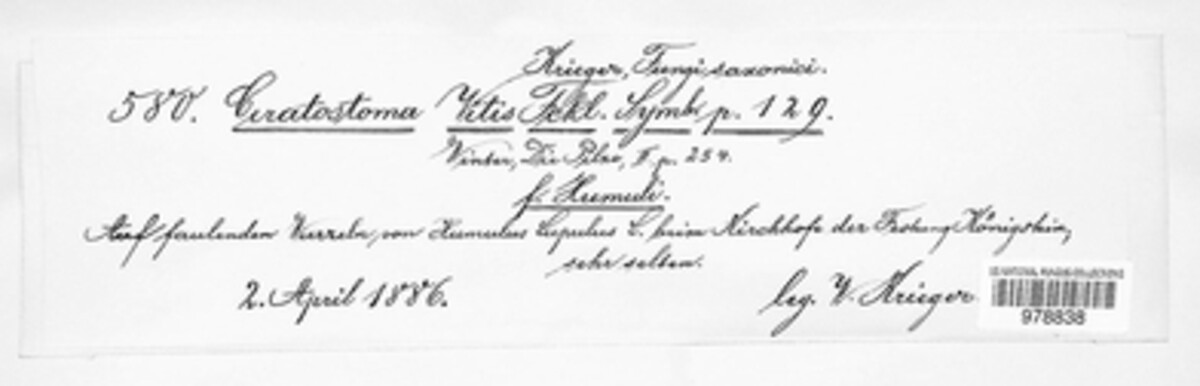 Krieger, Fungi saxonici.
580. Ceratostoma Vitis Fckl. Symb. p. 129.
Winter, Die Pilze, II p. 254.
f. Humuli.
Auf faulenden Wurzeln von Humulus Lupulus L. beim Kirchhofe der Festung Königstein,
sehr selten.
2. April 1886.
leg. W. Krieger
US NATIONAL FUNGUS COLLECTIONS
978838